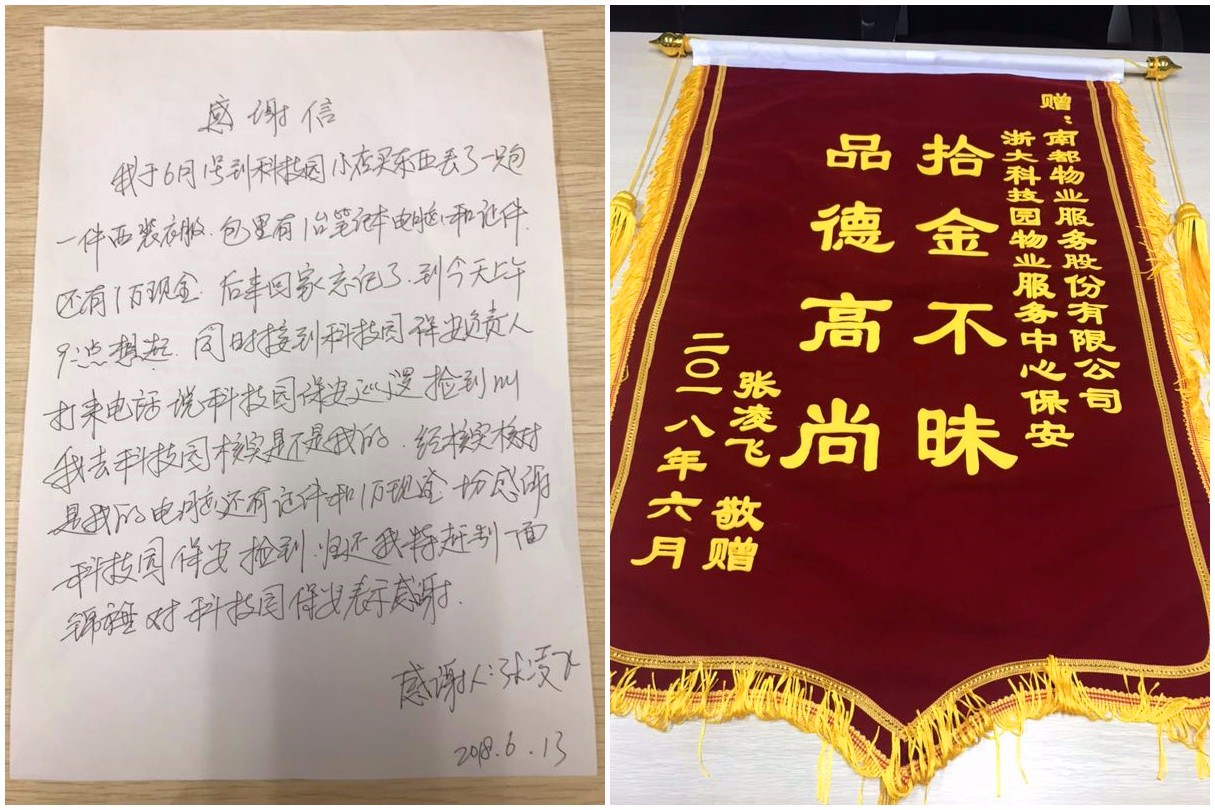 感谢信
我于6月1号到科技园小店买东西丢了一只包
一件西装衣服.包里有1台笔记本电脑和证件.
还有1万现金.后来回家忘记了.到今天上午
9:点想起.同时接到科技园保安负责人
打来电话说科技园保安巡逻捡到叫
我去科技园核实是不是我的.经核实核对
是我的电脑还有证件和1万现金.十分感谢
科技园保安捡到归还我特赶制一面
锦锤对科技园保安表示感谢.
感谢人:张凌飞
2018.6.13
赠:南都物业服务股份有限公司
浙大科技园物业服务中心保安
拾金不昧
品德高尚
张凌飞 敬赠
二〇一八年六月